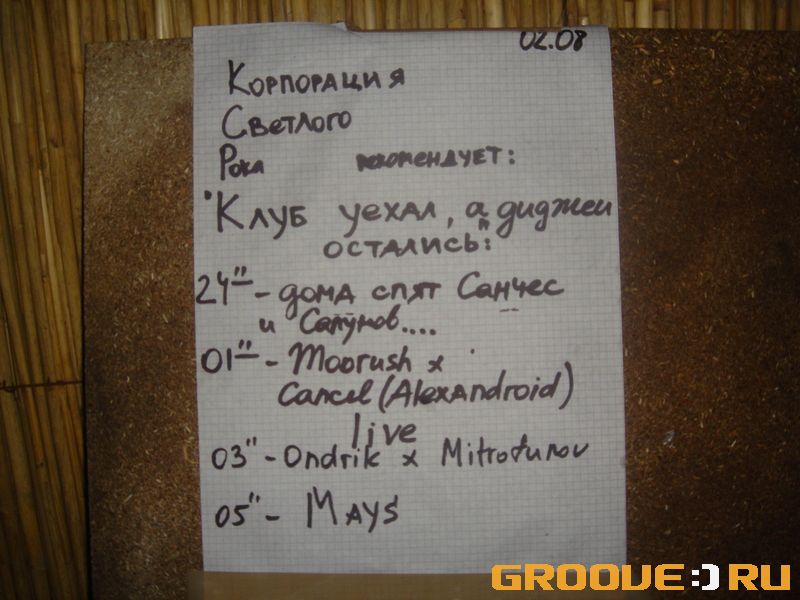 02.08
Корпорация
Светлого
Рока рекомендует:
"Клуб уехал, а диджеи"
остались:
24" - дома спят Санчес
и Сапунов....
01" - Moorush x
Cancel (Alexandroid)
live
03" - Ondrik x Mitrofunov
05" - Mays
GROOVE:)RU